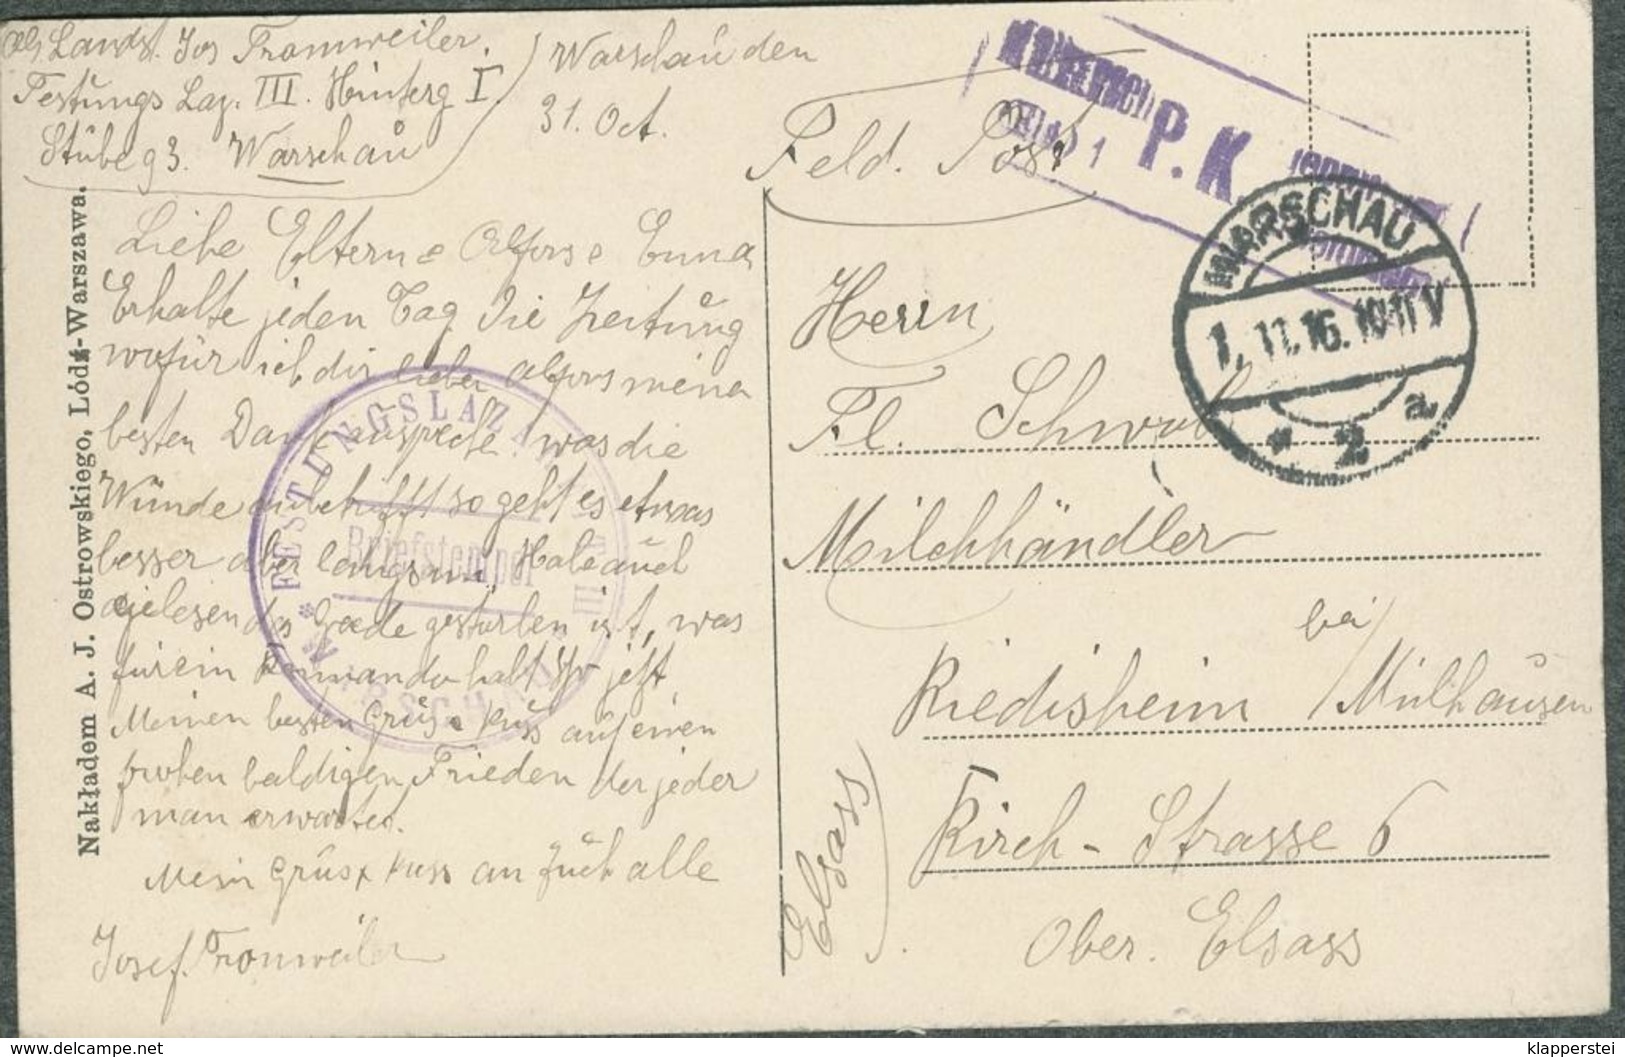 Abs. Landst. Jos Tromweiler.
Festungs Laz. III. Hinterg I
Stube 93. Warschau
Warschau den
31. Oct.
Feld. Post
P.K.
WARSCHAU
1.11.16.10-11V
* 2 a
Liebe Eltern e Alfons e Emma
Erhalte jeden Tag die Zeitung
wofür ich dir lieber Alfons meina
besten Dank ausspreche. was die
Wunde anbetrifft so geht es etwas
besser aber langsam. Habe auch
gelesen das Gaede gestorben ist, was
für ein Komando habt Ihr jetzt
Meinen besten Grüs e Küss auf einen
frohen baldigen Frieden der jeder
man erwartet.
Mein Grüs x Kuss an Euch alle
Josef. Tromweiler
FESTUNGSLAZARETT III
Briefstempel
* WARSCHAU *
Herrn
Fl. Schwob
Milchhändler
bei
Riedisheim / Mülhausen
Kirch-Strasse 6
Ober. Elsass
Elsass
Nakładem A. J. Ostrowskiego, Łódź-Warszawa.
www.delcampe.net
klapperstei